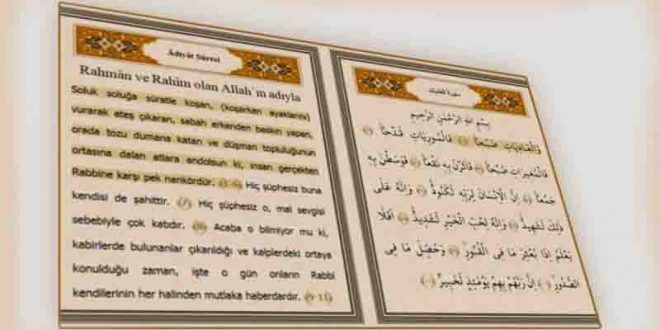 Âdiyât Sûresi
Rahmân ve Rahîm olan Allah´ın adıyla
Soluk soluğa süratle koşan, (koşarken ayaklarını)
vurarak ateş çıkaran, sabah erkenden baskın yapan,
orada tozu dumana katan ve düşman topluluğunun
ortasına dalan atlara andolsun ki, insan gerçekten
Rabbine karşı pek nankördür. (1-6) Hiç şüphesiz buna
kendisi de şahittir. (7) Hiç şüphesiz o, mal sevgisi
sebebiyle çok katıdır. (8) Acaba o bilmiyor mu ki,
kabirlerde bulunanlar çıkarıldığı ve kalplerdeki ortaya
konulduğu zaman, işte o gün onların Rabbi
kendilerinin her halinden mutlaka haberdardır. (9-11)
سورة العاديات
بِسْمِ اللهِ الرَّحْمٰنِ الرَّحِيمِ
وَالْعَادِيَاتِ ضَبْحًا ﴿١﴾ فَالْمُورِيَاتِ قَدْحًا ﴿٢﴾
فَالْمُغِيرَاتِ صُبْحًا ﴿٣﴾ فَاَثَرْنَ بِهِ نَقْعًا ﴿٤﴾ فَوَسَطْنَ بِهِ
جَمْعًا ﴿٥﴾ اِنَّ الْاِنْسَانَ لِرَبِّهِ لَكَنُودٌ ﴿٦﴾ وَاِنَّهُ عَلَى
ذٰلِكَ لَشَهِيدٌ ﴿٧﴾ وَاِنَّهُ لِحُبِّ الْخَيْرِ لَشَدِيدٌ ﴿٨﴾ اَفَلَا
يَعْلَمُ اِذَا بُعْثِرَ مَا فِى الْقُبُورِ ﴿٩﴾ وَحُصِّلَ مَا فِى
الصُّدُورِ ﴿١٠﴾ اِنَّ رَبَّهُمْ بِهِمْ يَوْمَئِذٍ لَخَبِيرٌ ﴿١١﴾